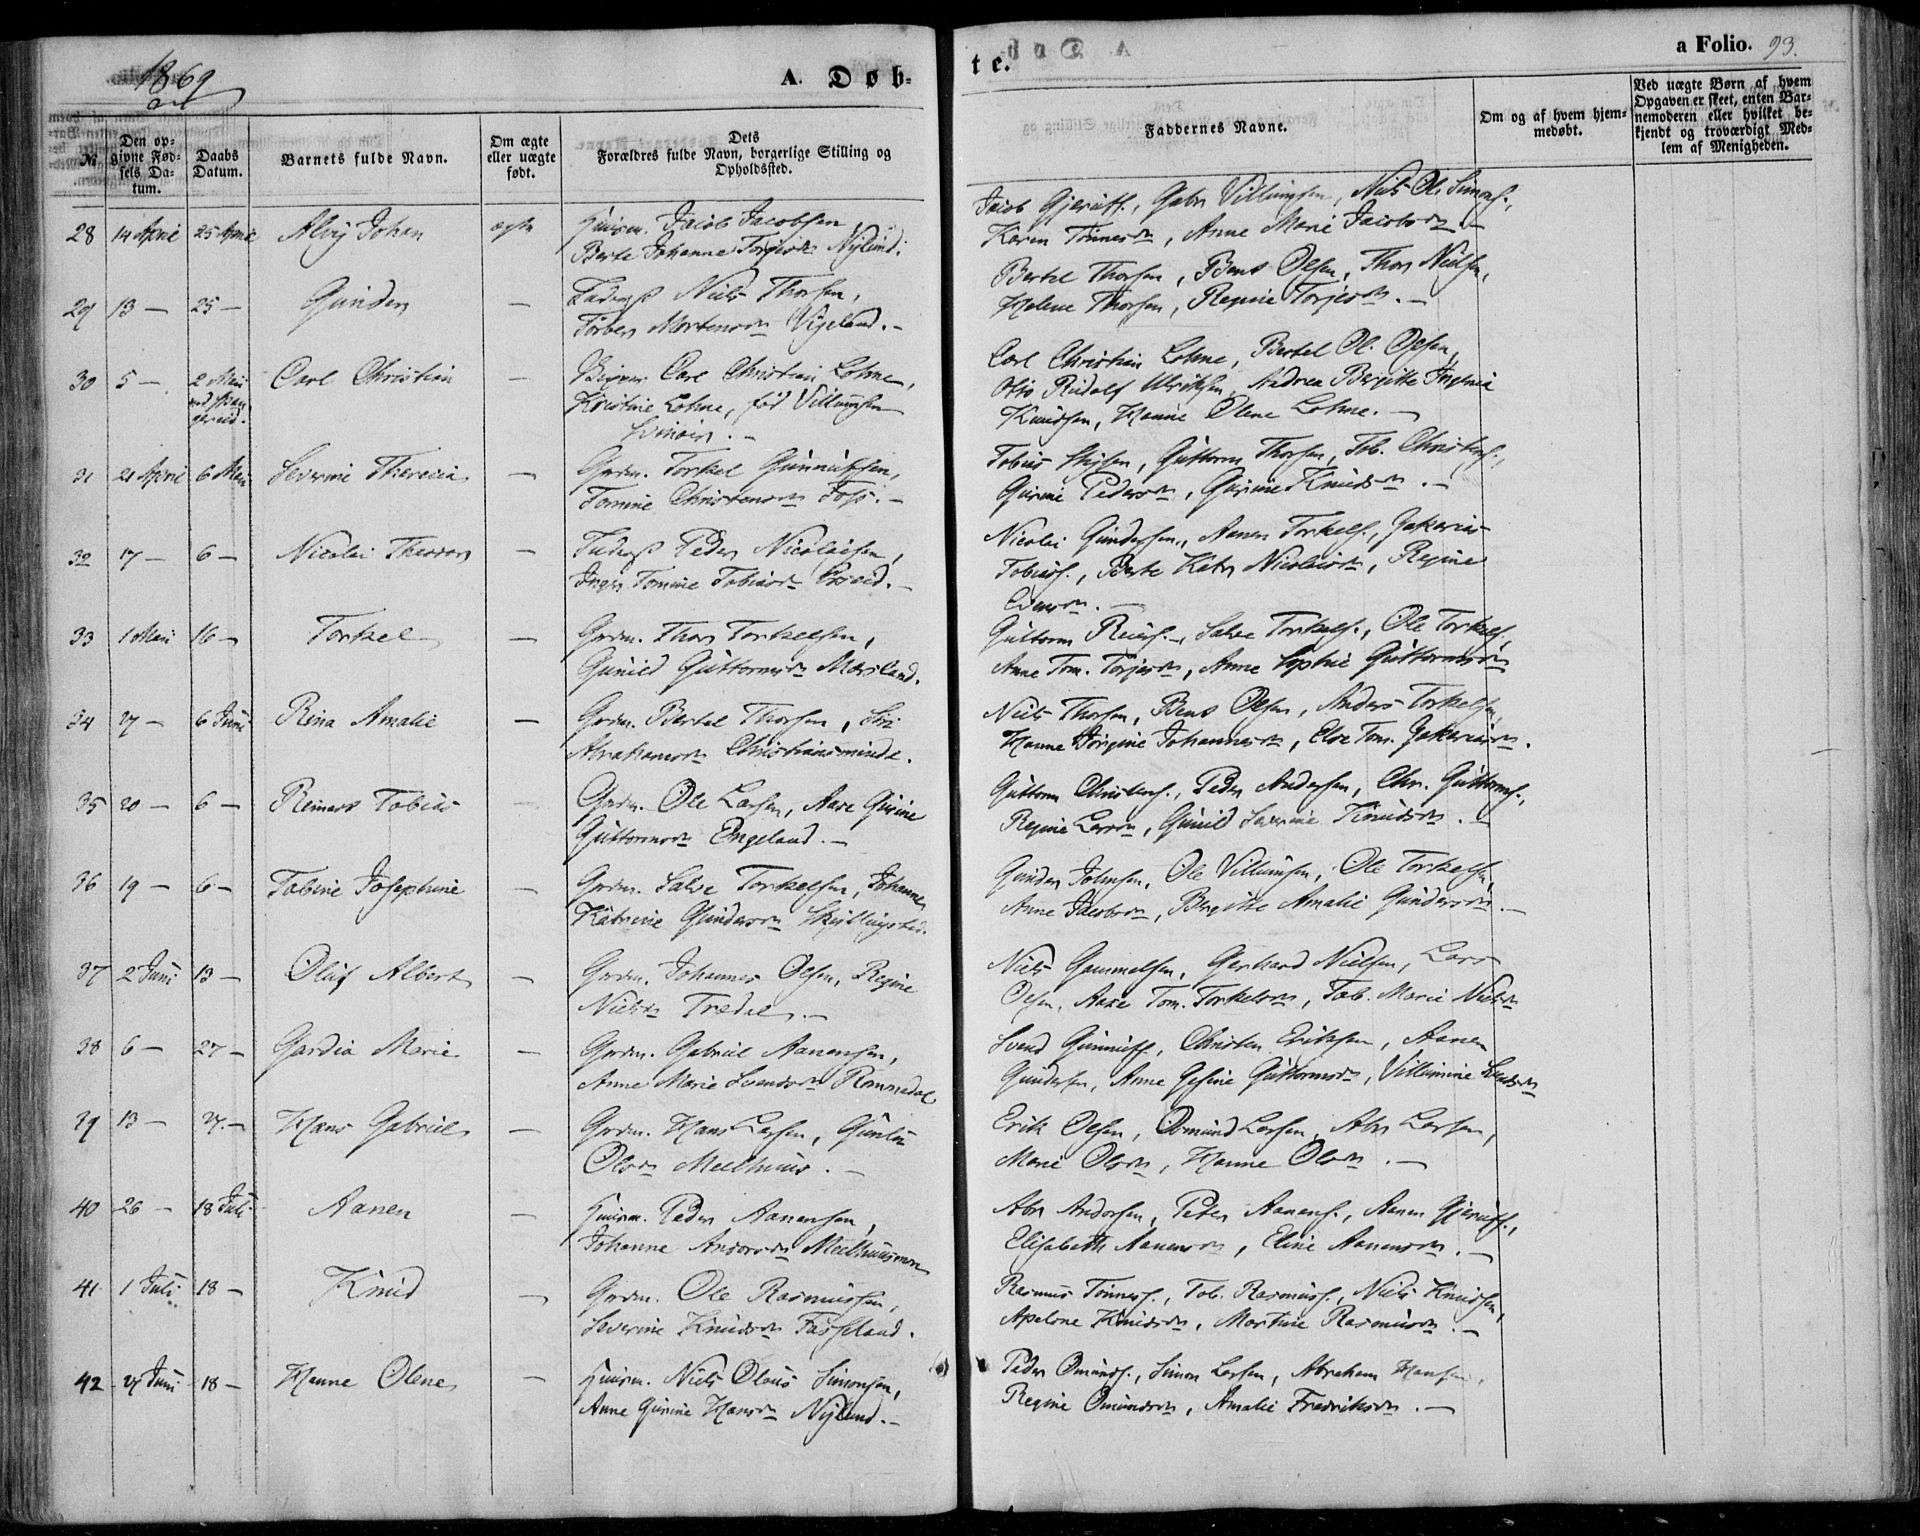 1869
A. Døb-
te.
a Folio. 93.
No.
Den op-
givne Fød-
sels Da-
tum.
Daabs
Datum.
Barnets fulde Navn.
Om ægte
eller uægte
født.
Dets
Forældres fulde Navn, borgerlige Stilling og
Opholdssted.
Faddernes Navne.
Om og af hvem hjem-
medøbt.
Ved uægte Børn af hvem
Opgaven er skeet, enten Bar-
nemoderen eller hvilket be-
kjendt og troværdigt Med-
lem af Menigheden.
28 14 April 25 April Alvij Johan ægte Huusm. Jacob Jacobsen
Berte Johanne Nylund.
Jacob Gjeruff., Gabr Villumsen, Niels Ol. Simons.,
Karen Tønnesdr, Anne Marie Jacobsdr —
29 13 — 25 — Gunder — Niels Thorsen,
Torber Mortensdr Vigeland. —
Bertel Thorsen, Bent Olsen, Thor Nielsen,
Helene Thorsen, Regine Torjesdr. —
30 5 — 2 Mai Carl Christian — Skipper Carl Christian Lohne,
Kristine Lohne, fød Villumsen
Carl Christian Lohne, Bertel Ol. Olsen,
Otto Rudolf Ulriksen, Andrea Bergitte
Knudsen, Hanne Olene Lohne. —
31 21 April 6 Mai Severine Therecia — Grdm. Torkel Gunnufsen,
Tomine Christensdr Foss. —
Tobias Guttorm Thorsen, Tob. Christens.,
Gurine Pedersdr, Gurine Knudsdr. —
32 17 — 6 — Nicolai Theodor — Peder Nicolaisen,
Inger Tomine Tobiasdr
Nicolai Gundersen, Aanen Torkels., Zakarias
Tobias., Berte Katr. Nicolaisdr, Regine
33 1 Mai 16 — Torkel — Grdm. Thor Torkelsen,
Gunild Guttormsdr
Guttorm Salve Torkels., Ole Torkels.
Anne Tom. Torjesdr, Anne Sophie Guttormsdr
34 27 — 6 Juni Rina Amalie — Grdm. Bertel Thorsen, Siri
Abrahamsdr Christiansminde.
Niels Thorsen, Bent Olsen, Anders Torkelsen,
Hanne Jorgine Johannesdr, Else Tom. Zakariasdr.
35 20 — 6 — Reinert Tobias — Grdm. Ole Larsen, Aase Gurine
Guttormsdr Engeland. —
Guttorm Christens., Peder Andersen, Chr. Guttorms.,
Regine Larsdr, Gunild Severine Knudsdr. —
36 19 — 6 — Tobine Josephine — Grdm. Salve Torkelsen, Johanne
Katrine Gundersdr
Gunder Johnsen, Ole Villumsen, Ole Torkelsen,
Anne Jacobsdr, Bergitte Amalie Gundersdr. —
37 2 Juni 13 — Oluf Albert — Grdm. Johannes Olsen, Regine
Nielsdr Trædal. —
Niels Gammelsen, Gerhard Nielsen, Lars
Olsen, Aase Tom. Torkelsdr, Tob. Marie Nielsdr
38 6 — 27 — Gardia Marie — Grdm. Gabriel Aanensen,
Anne Marie Svendsdr Rommedal
Svend Gunnuff., Christen Eriksen, Aanen
Gundersen, Anne Gesine Guttormsdr, Villumine
39 13 — 27. — Hans Gabriel — Grdm. Hans Larsen,
Olsdr Meelhuus. —
Erik Olsen, Osmund Larsen, Abr. Larsen,
Marie Olsdr, Hanne Olsdr. —
40 26 — 18 Juli Aanen — Huusm. Peder Aanensen,
Johanne Andersdr Meelhuusmoen
Abr. Andersen, Peter Aanens., Aanen Gjeruff.,
Elisabeth Aanensdr, Eline Aanensdr. —
41 1 Juli 18 — Knud — Grdm. Ole Rasmussen,
Severine Knudsdr Fasseland.
Rasmus Tønness., Tob. Rasmuss., Niels Knudsen,
Apelone Knudsdr, Martine Rasmusdr. —
42 27 Juni 18 — Hanne Olene — Huusm. Niels Olaus Simonsen,
Anne Gurine Hansdr Nylund. —
Peder Omunds., Simon Larsen, Abraham Hansen,
Regine Omundsdr, Amalie Fredriksdr. —